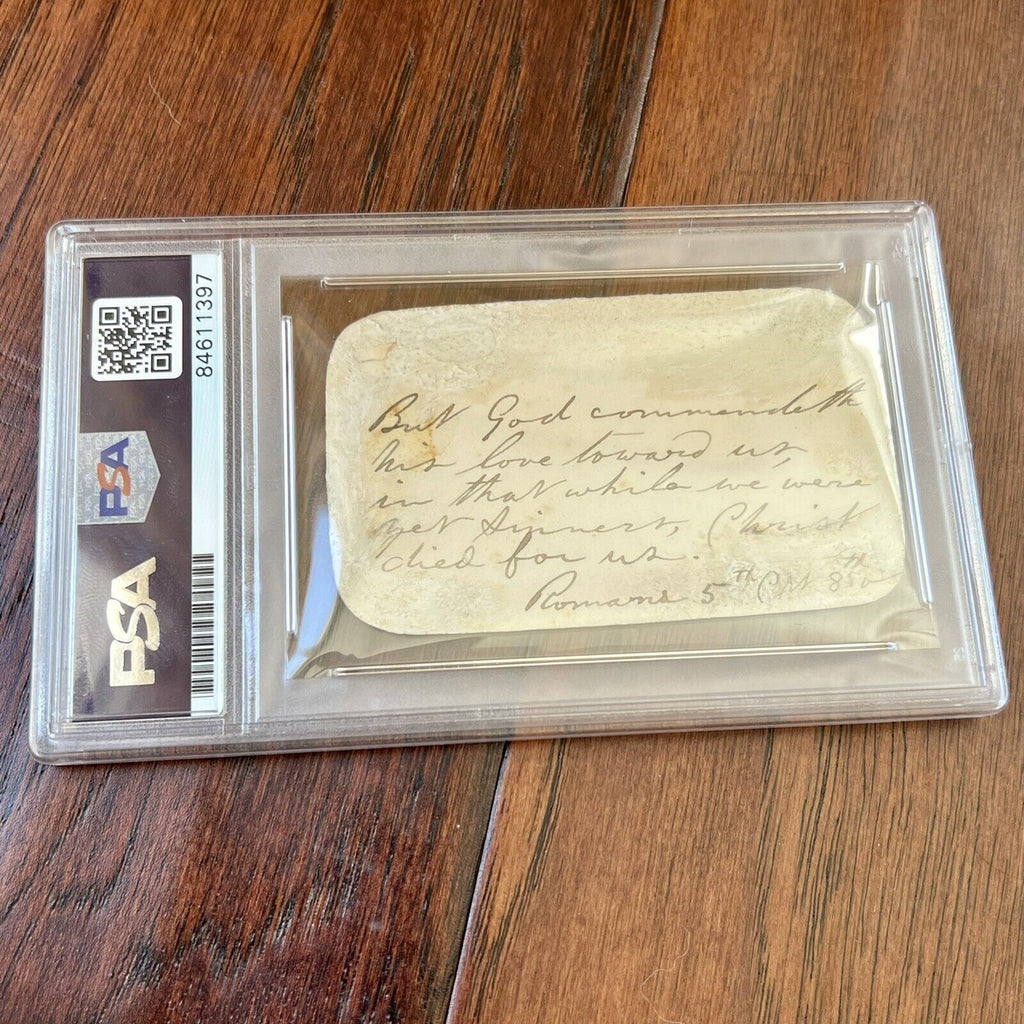 84611397
PSA
PSA
But God commendeth
his love toward us,
in that while we were
yet sinners, Christ
died for us.
Romans 5th 8th